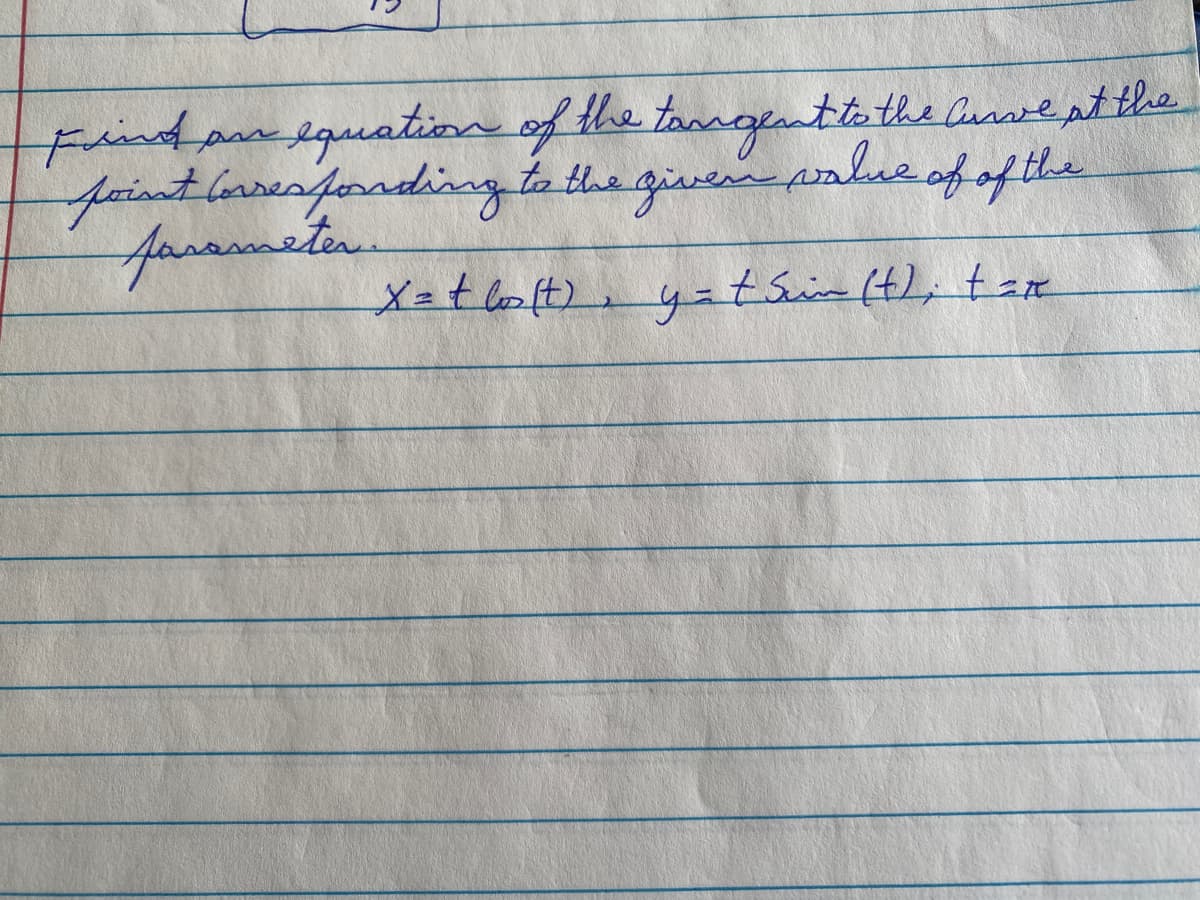 Find an equation of the tangent to the Curve at the
point Corresponding to the given value of of the
parameter.
X = t Cos(t), y = t Sin(t); t = π